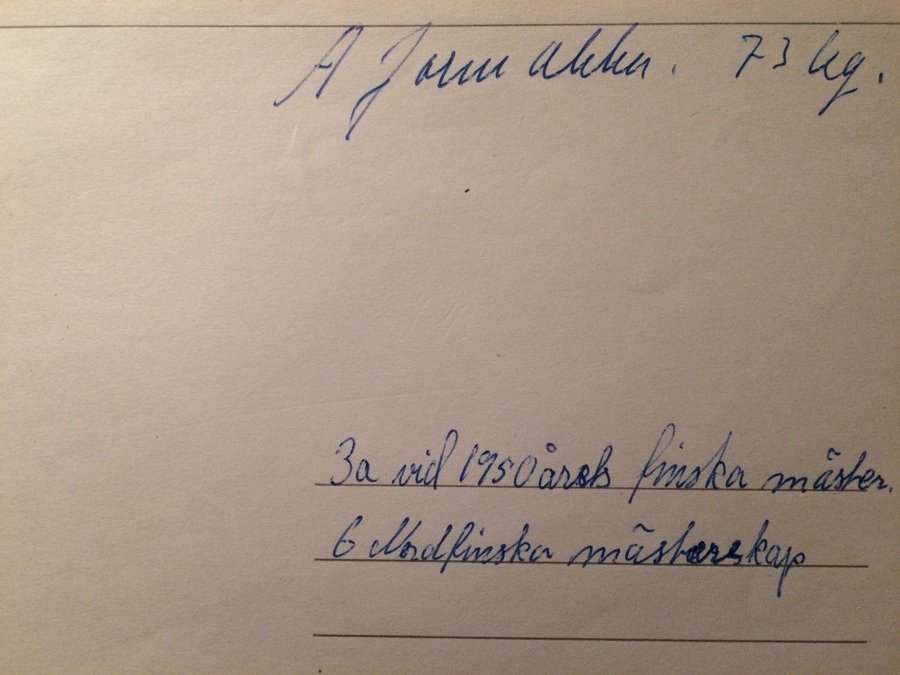 A Jormakka. 73 kg.
3a vid 1950årets finska mäster.
6 Nordfinska mästerskap